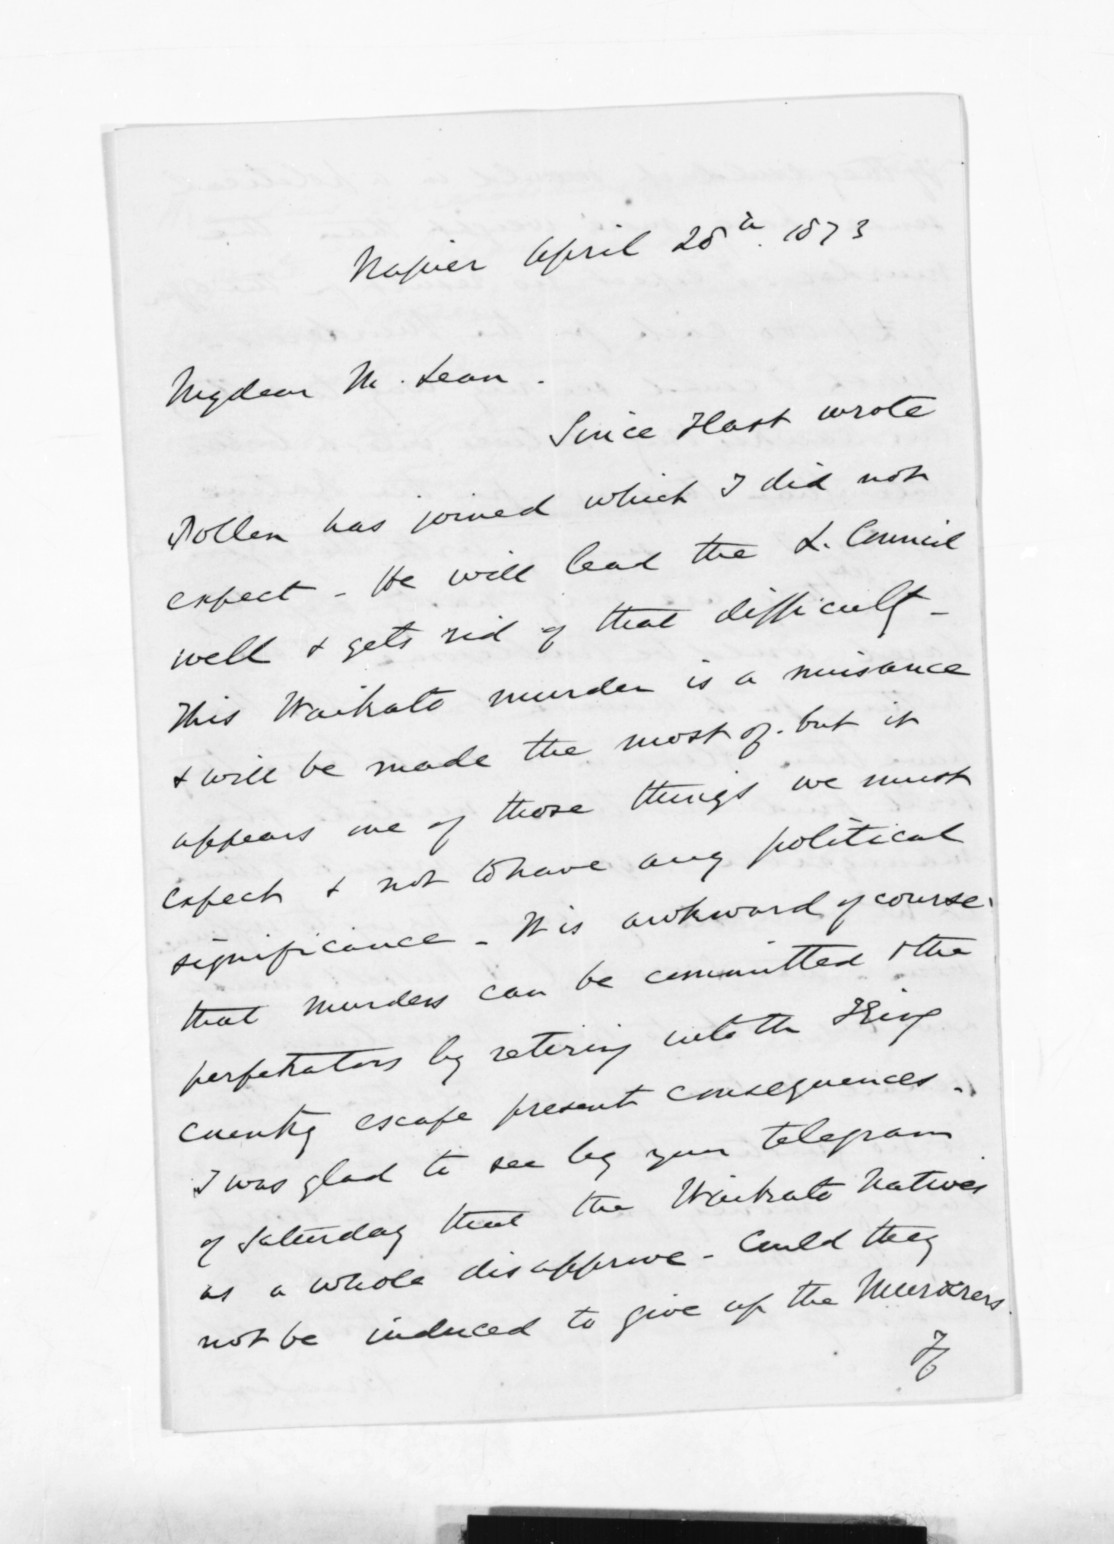 Napier April 28th. 1873
My dear McLean.
Since I last wrote
Pollen has joined which I did not
expect - He will lead the L. Council
well & gets rid of that difficulty -
This Waikato murder is a nuisance
& will be made the most of. but it
appears one of those things we must
expect & not to have any political
significance - It is awkward of course
that murders can be committed & the
perpetrators by retiring into the King
country escape present consequences -
I was glad to see by your telegram
of Saturday that the Waikato Natives
as a whole disapprove - Could they
not be induced to give up the Murderers.
If